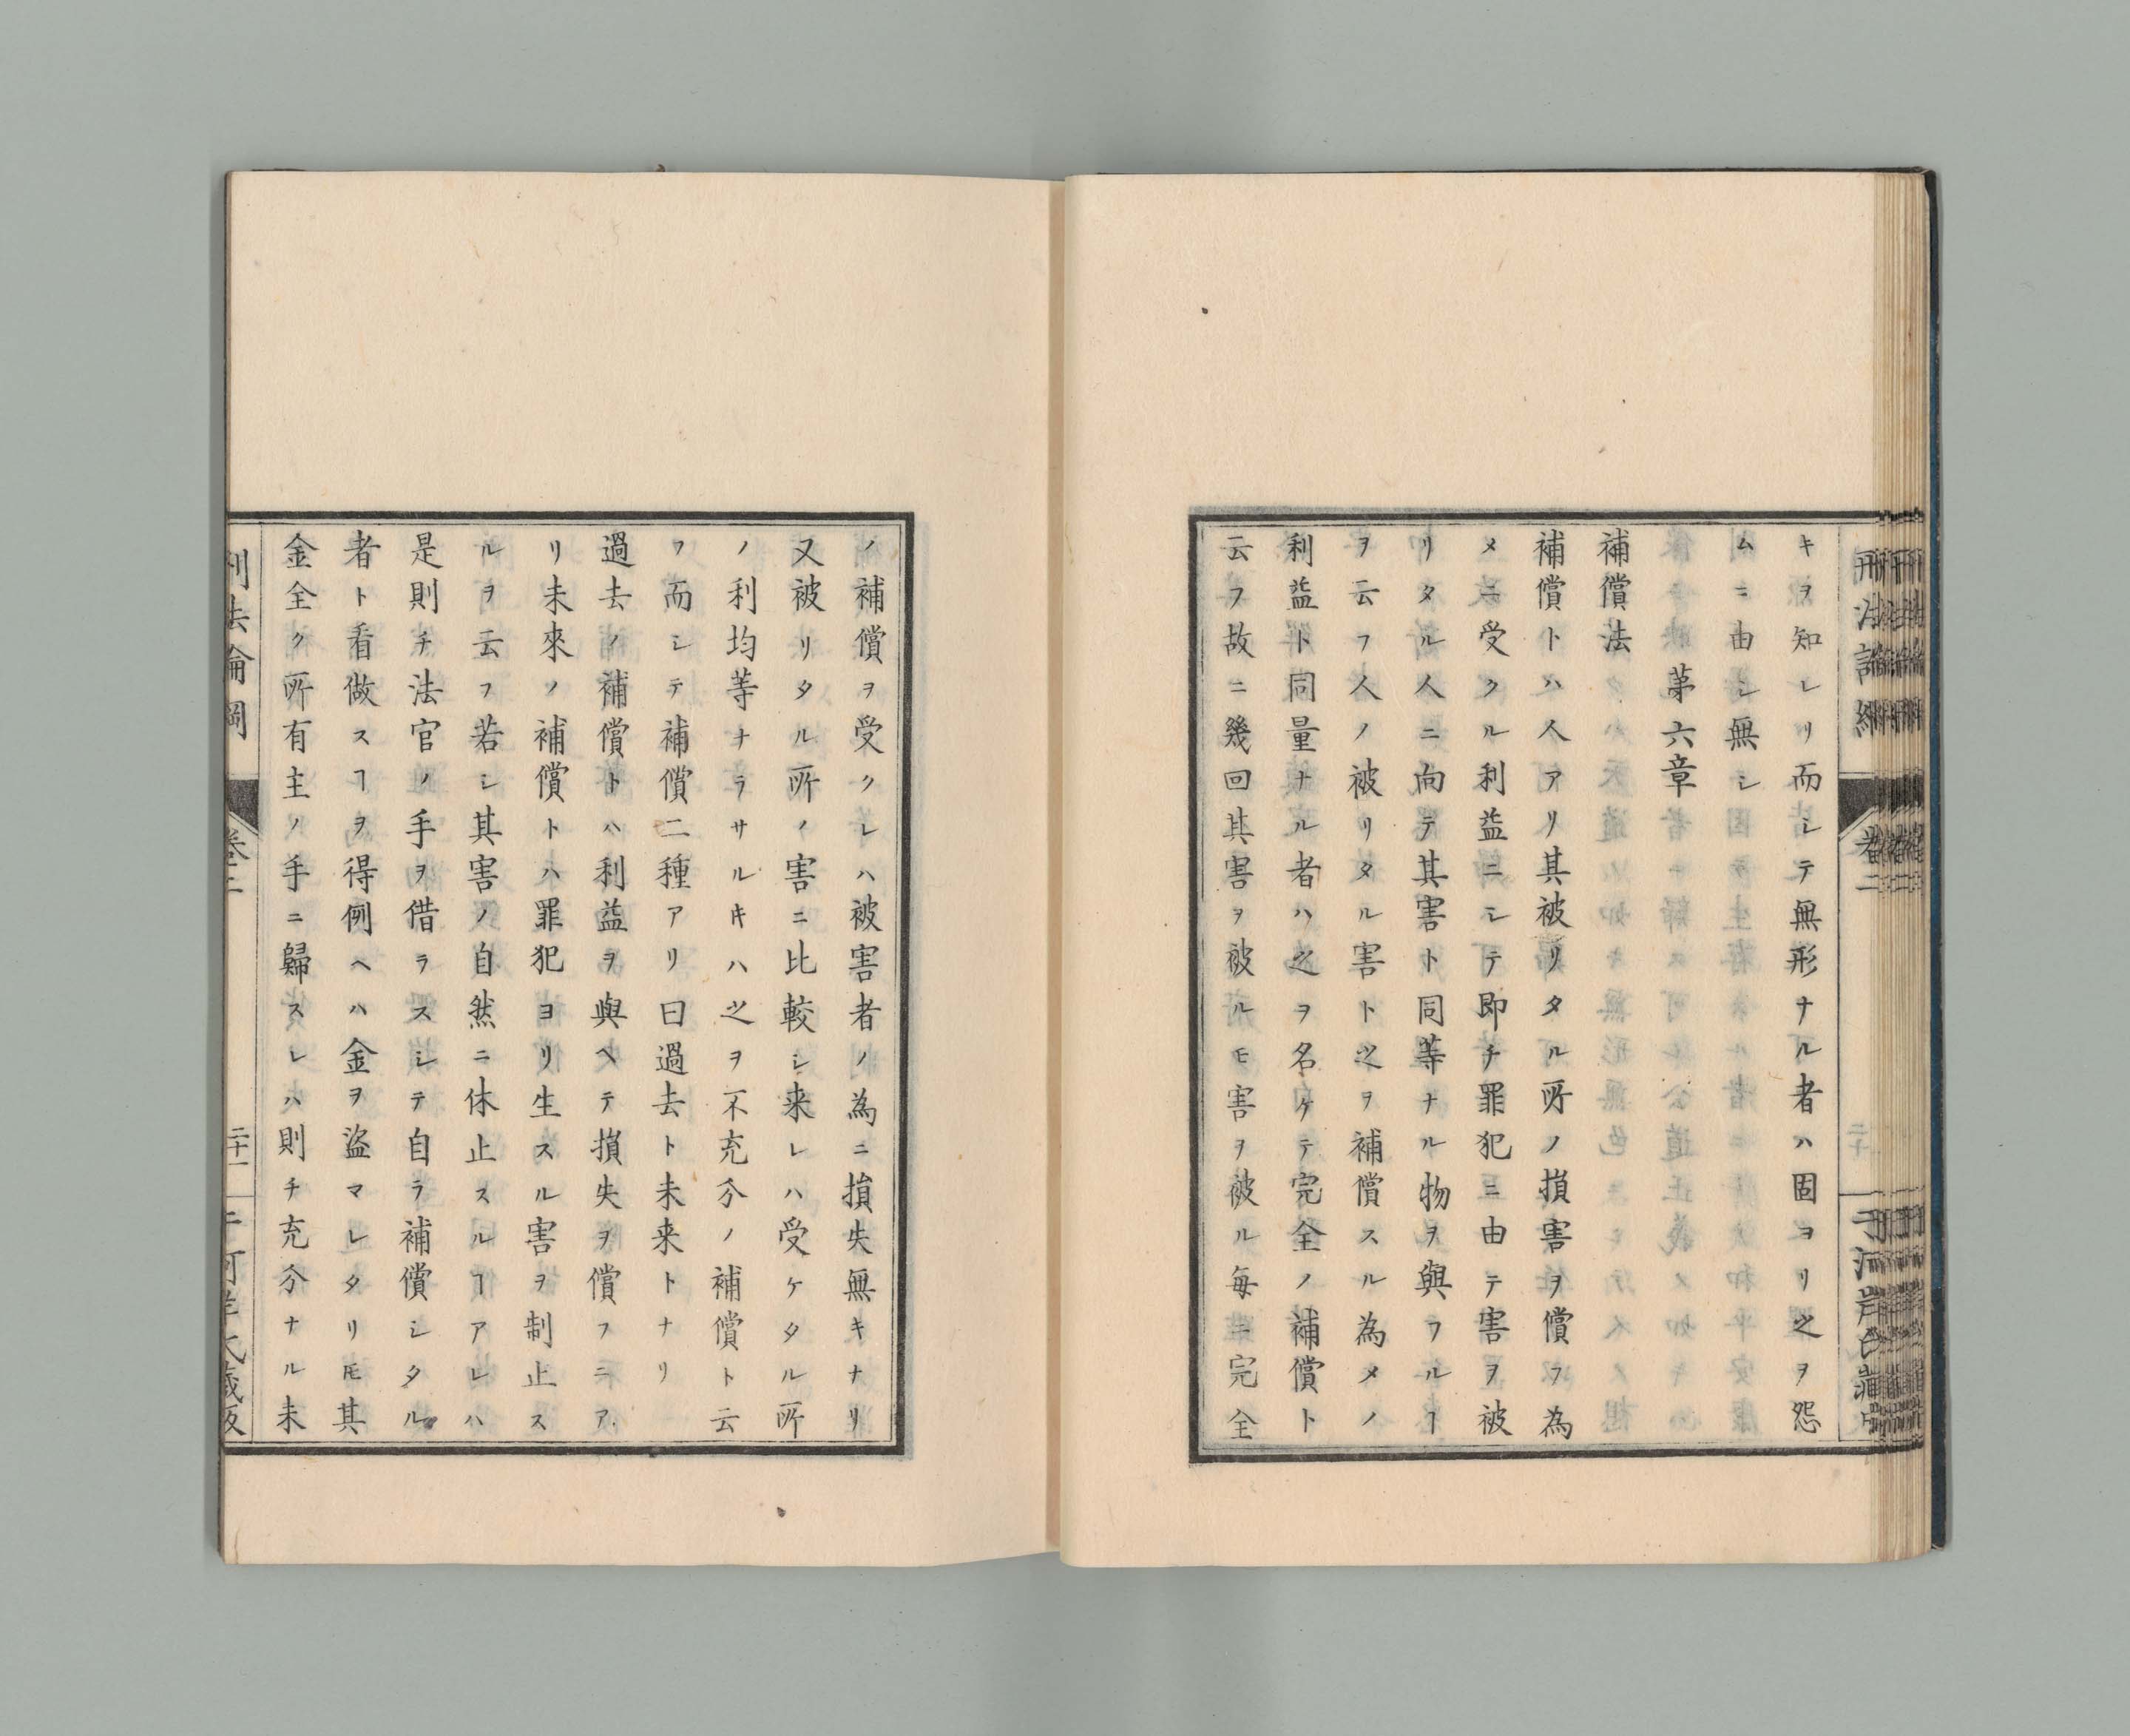 キヲ知レリ而シテ無形ナル者ハ固ヨリ之ヲ怨
ムニ由シ無シ
第六章
補償法
補償トハ人アリ其被リタル所ノ損害ヲ償フ為
メニ受クル利益ニシテ即チ罪犯ニ由テ害ヲ被
リタル人ニ向テ其害ト同等ナル物ヲ與フルヿ
ヲ云フ人ノ被リタル害ト之ヲ補償スル為メノ
利益ト同量ナル者ハ之ヲ名ケテ完全ノ補償ト
云フ故ニ幾回其害ヲ被ルモ害ヲ被ル毎ニ完全
ノ補償ヲ受クレハ被害者ノ為ニ損失無キナリ
又被リタル所ノ害ニ比較シ来レハ受ケタル所
ノ利均等ナラサルキハ之ヲ不充分ノ補償ト云
フ而シテ補償二種アリ曰過去ト未来トナリ
過去ノ補償トハ利益ヲ與ヘテ損失ヲ償フニア
リ未來ノ補償トハ罪犯ヨリ生スル害ヲ制止ス
ルヲ云フ若シ其害ノ自然ニ休止スルヿアレハ
是則チ法官ノ手ヲ借ラスシテ自ラ補償シタル
者ト看做スヿヲ得例ヘハ金ヲ盗マレタリ𪜈其
金全ク所有主ノ手ニ歸スレハ則チ充分ナル未
刑法論綱
卷二
二十一